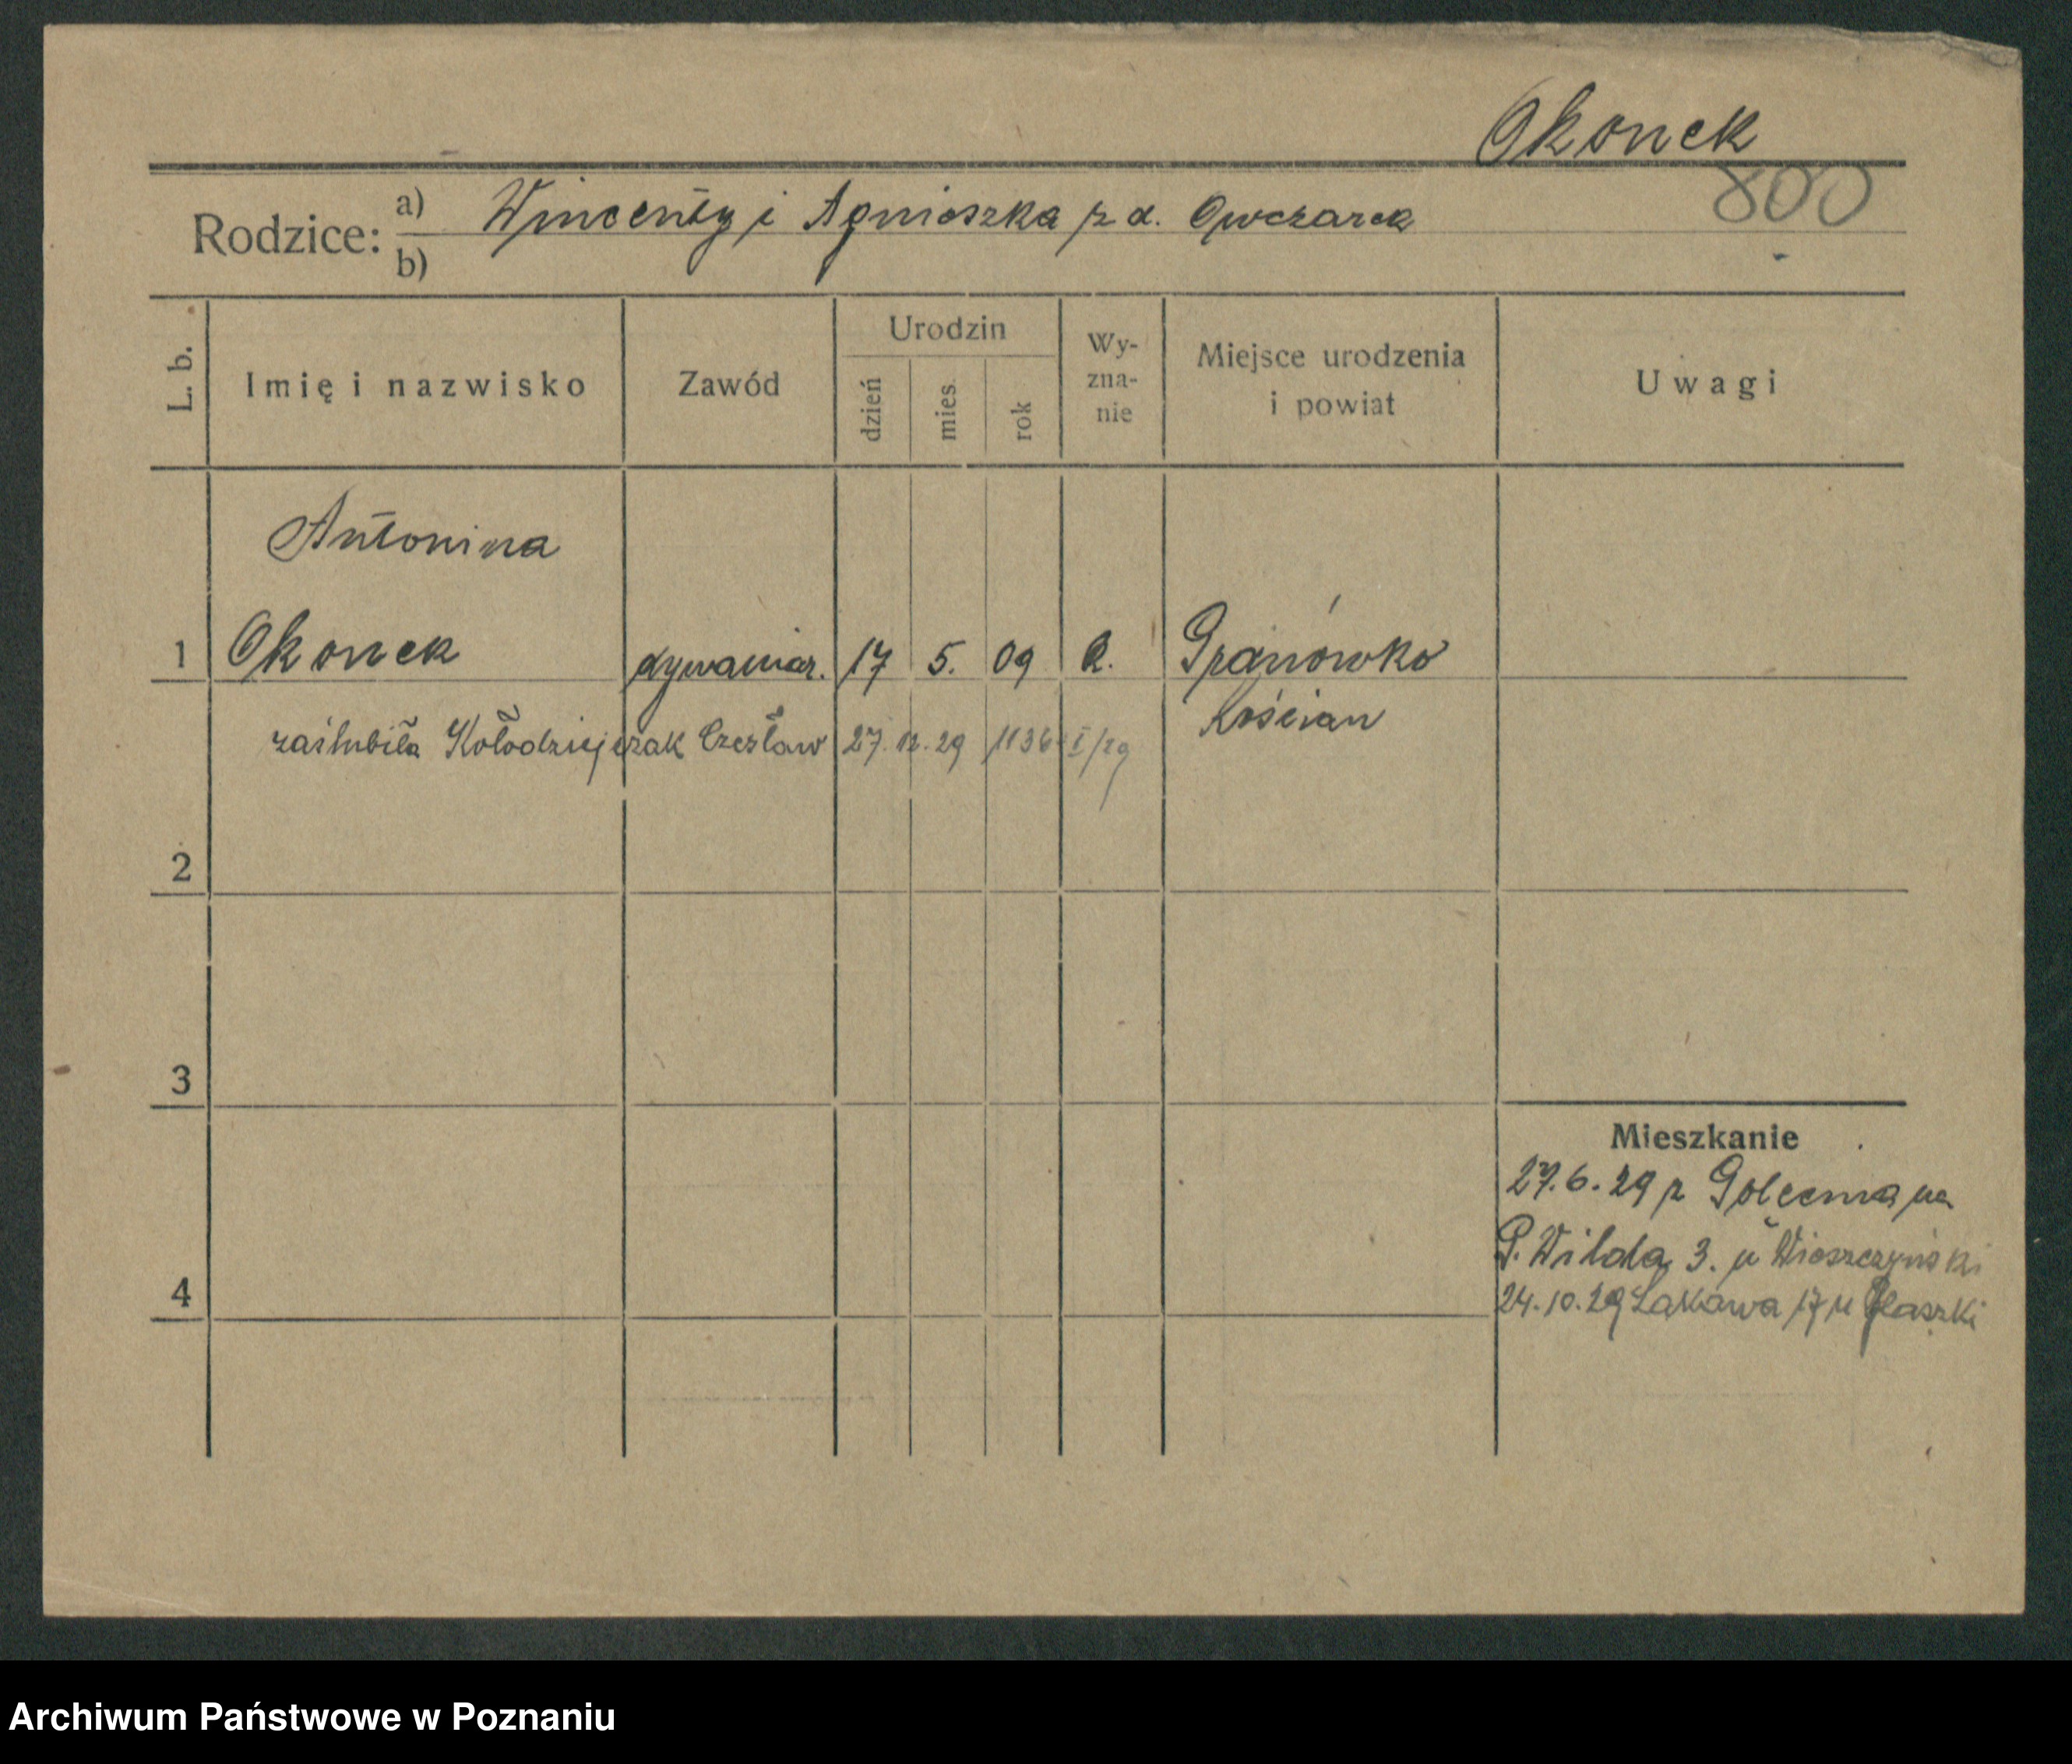 Okonek
800
Rodzice: a) Wincenty i Agnieszka z d. Owczarek
b)
L. b. Imię i nazwisko Zawód Urodzin dzień mies. rok Wy-zna-nie Miejsce urodzenia i powiat Uwagi
Antonina
1 Okonek dywaniar. 17 5. 09 R. Granówko
Kościan
zaślubiła Kołodziejczak Czesław 27. 12. 29 1136 I/29
2
3
Mieszkanie
27.6.29 z Golecina na
G. Wilda 3. u
4
24.10.29 Łąkowa 17 u
Archiwum Państwowe w Poznaniu